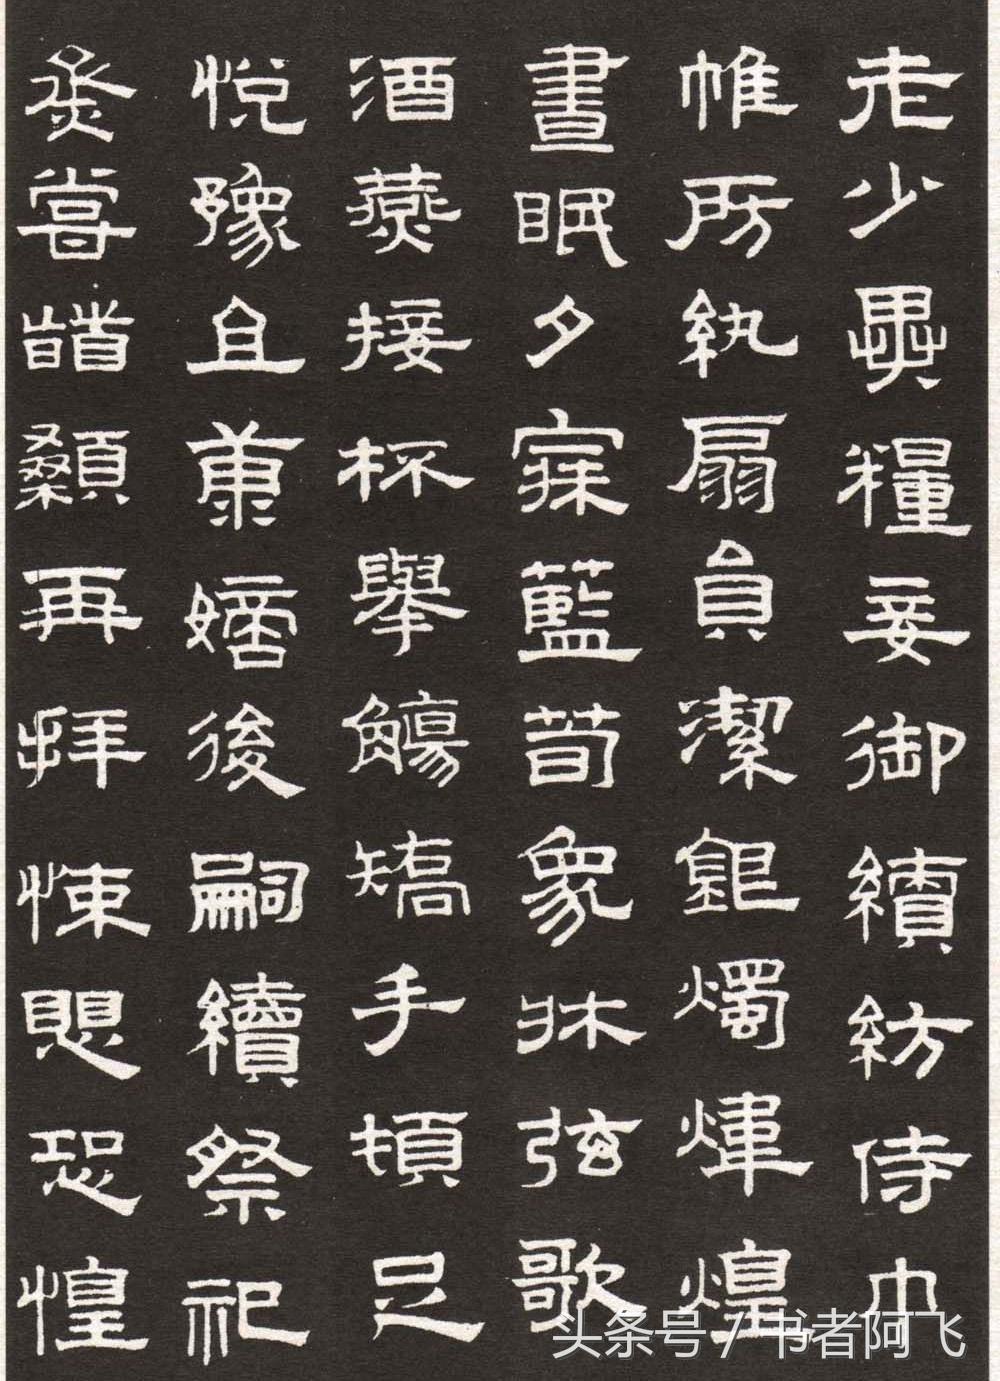 老少異糧妾御績紡侍巾
帷房紈扇員潔銀燭煒煌
晝眠夕寐藍荀象床弦歌
酒燕接杯舉觴矯手頓足
悅豫且康嫡後嗣續祭祀
烝嘗稽顙再拜悚懼恐惶
头条号 / 书者阿飞